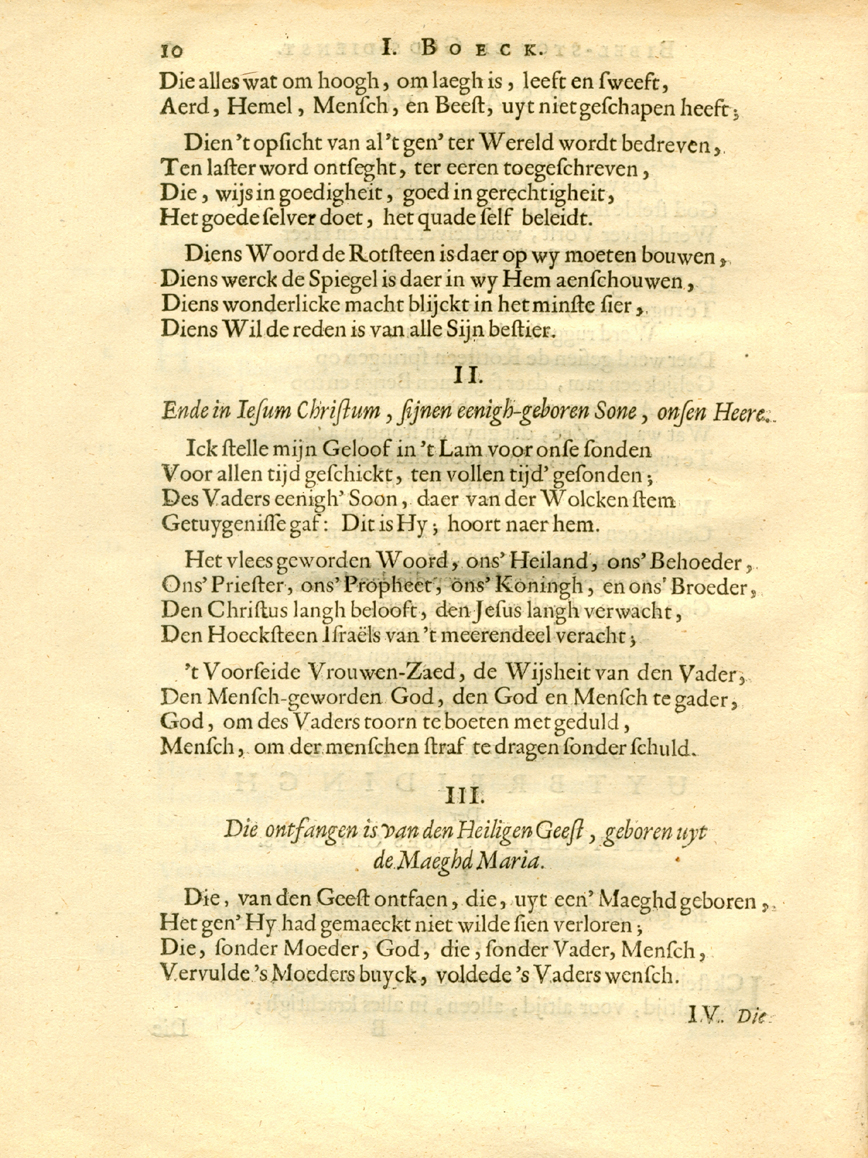 10 I. BOECK.
Die alles wat om hoogh, om laegh is, leeft en ſweeft,
Aerd, Hemel, Menſch, en Beeſt, uyt niet geſchapen heeft;
Dien 't opſicht van al 't gen' ter Wereld wordt bedreven,
Ten laſter word ontſeght, ter eeren toegeſchreven,
Die, wijs in goedigheit, goed in gerechtigheit,
Het goede ſelver doet, het quade ſelf beleidt.
Diens Woord de Rotſteen is daer op wy moeten bouwen,
Diens werck de Spiegel is daer in wy Hem aenſchouwen,
Diens wonderlicke macht blijckt in het minſte ſier,
Diens Wil de reden is van alle Sijn beſtier.
II.
Ende in Ieſum Chriſtum, ſijnen eenigh-geboren Sone, onſen Heere.
Ick ſtelle mijn Geloof in 't Lam voor onſe ſonden
Voor allen tijd geſchickt, ten vollen tijd' geſonden;
Des Vaders eenigh' Soon, daer van der Wolcken ſtem
Getuygeniſſe gaf: Dit is Hy; hoort naer hem.
Het vlees geworden Woord, ons' Heiland, ons' Behoeder,
Ons' Prieſter, ons' Propheet, ons' Koningh, en ons' Broeder,
Den Chriſtus langh belooft, den Jeſus langh verwacht,
Den Hoeckſteen Iſraëls van 't meerendeel veracht;
't Voorſeide Vrouwen-Zaed, de Wijsheit van den Vader,
Den Menſch-geworden God, den God en Menſch te gader,
God, om des Vaders toorn te boeten met geduld,
Menſch, om der menſchen ſtraf te dragen ſonder ſchuld.
III.
Die ontfangen is van den Heiligen Geeſt, geboren uyt
de Maeghd Maria.
Die, van den Geeſt ontfaen, die, uyt een' Maeghd geboren,
Het gen' Hy had gemaeckt niet wilde ſien verloren;
Die, ſonder Moeder, God, die, ſonder Vader, Menſch,
Vervulde 's Moeders buyck, voldede 's Vaders wenſch.
IV. Die